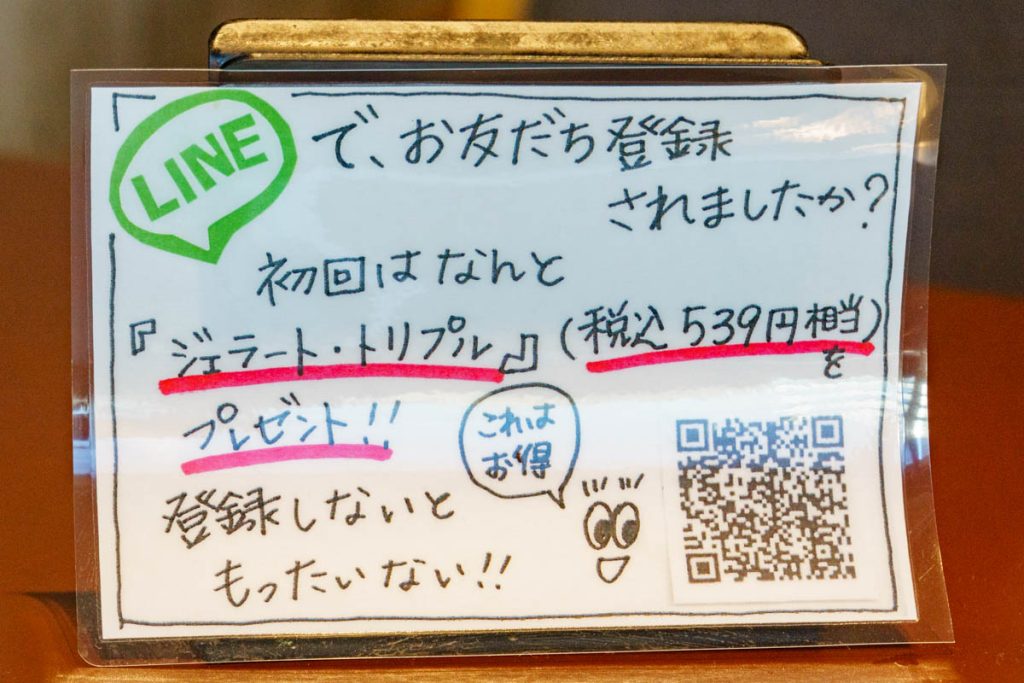 LINEで、お友だち登録
されましたか?
初回はなんと
『ジェラート・トリプル』(税込539円相当)を
プレゼント!!
これは
お得
登録しないと
もったいない!!